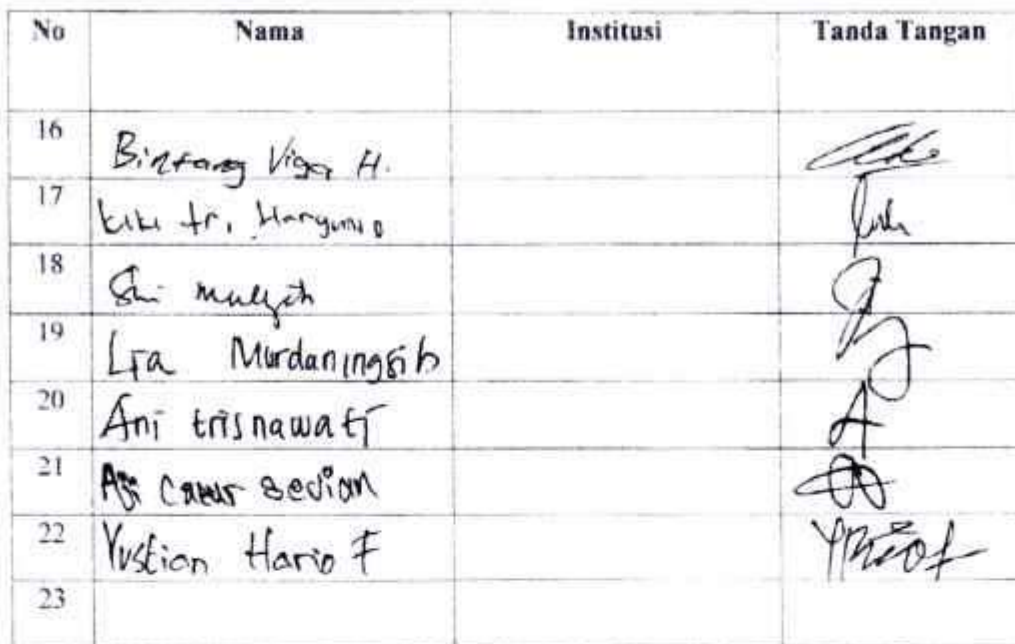 No Nama Institusi Tanda Tangan
16 Bintang Viga H.
17 Kiki tri Haryono
18 Sri
19 Lia Murdaningsih
20 Ani trisnawati
21 Aji
22 Yustian Hario F
23